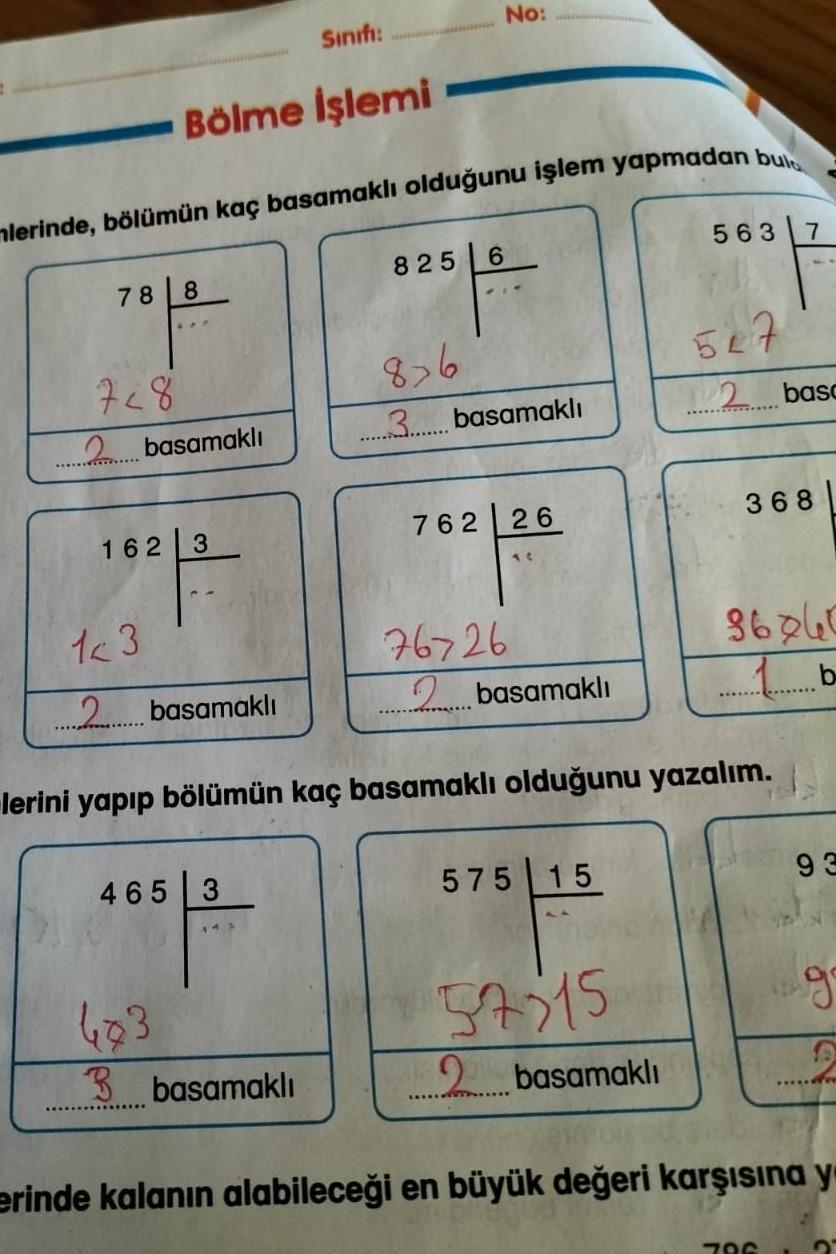 Sınıfı: No:
Bölme İşlemi
bölümün kaç basamaklı olduğunu işlem yapmadan
78 8
7<8
2 basamaklı
825 6
8>6
3 basamaklı
563 7
5<7
2
162 3
1<3
2 basamaklı
762 26
76>26
2 basamaklı
368
1
yapıp bölümün kaç basamaklı olduğunu yazalım.
465 3
3 basamaklı
575 15
57>15
2 basamaklı
2
kalanın alabileceği en büyük değeri karşısına